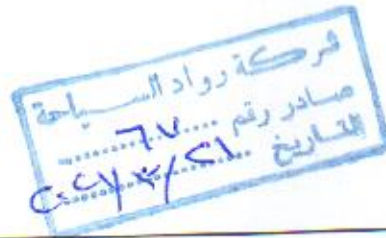 شركة رواد السياحة
صادر رقم ٦٧
التاريخ